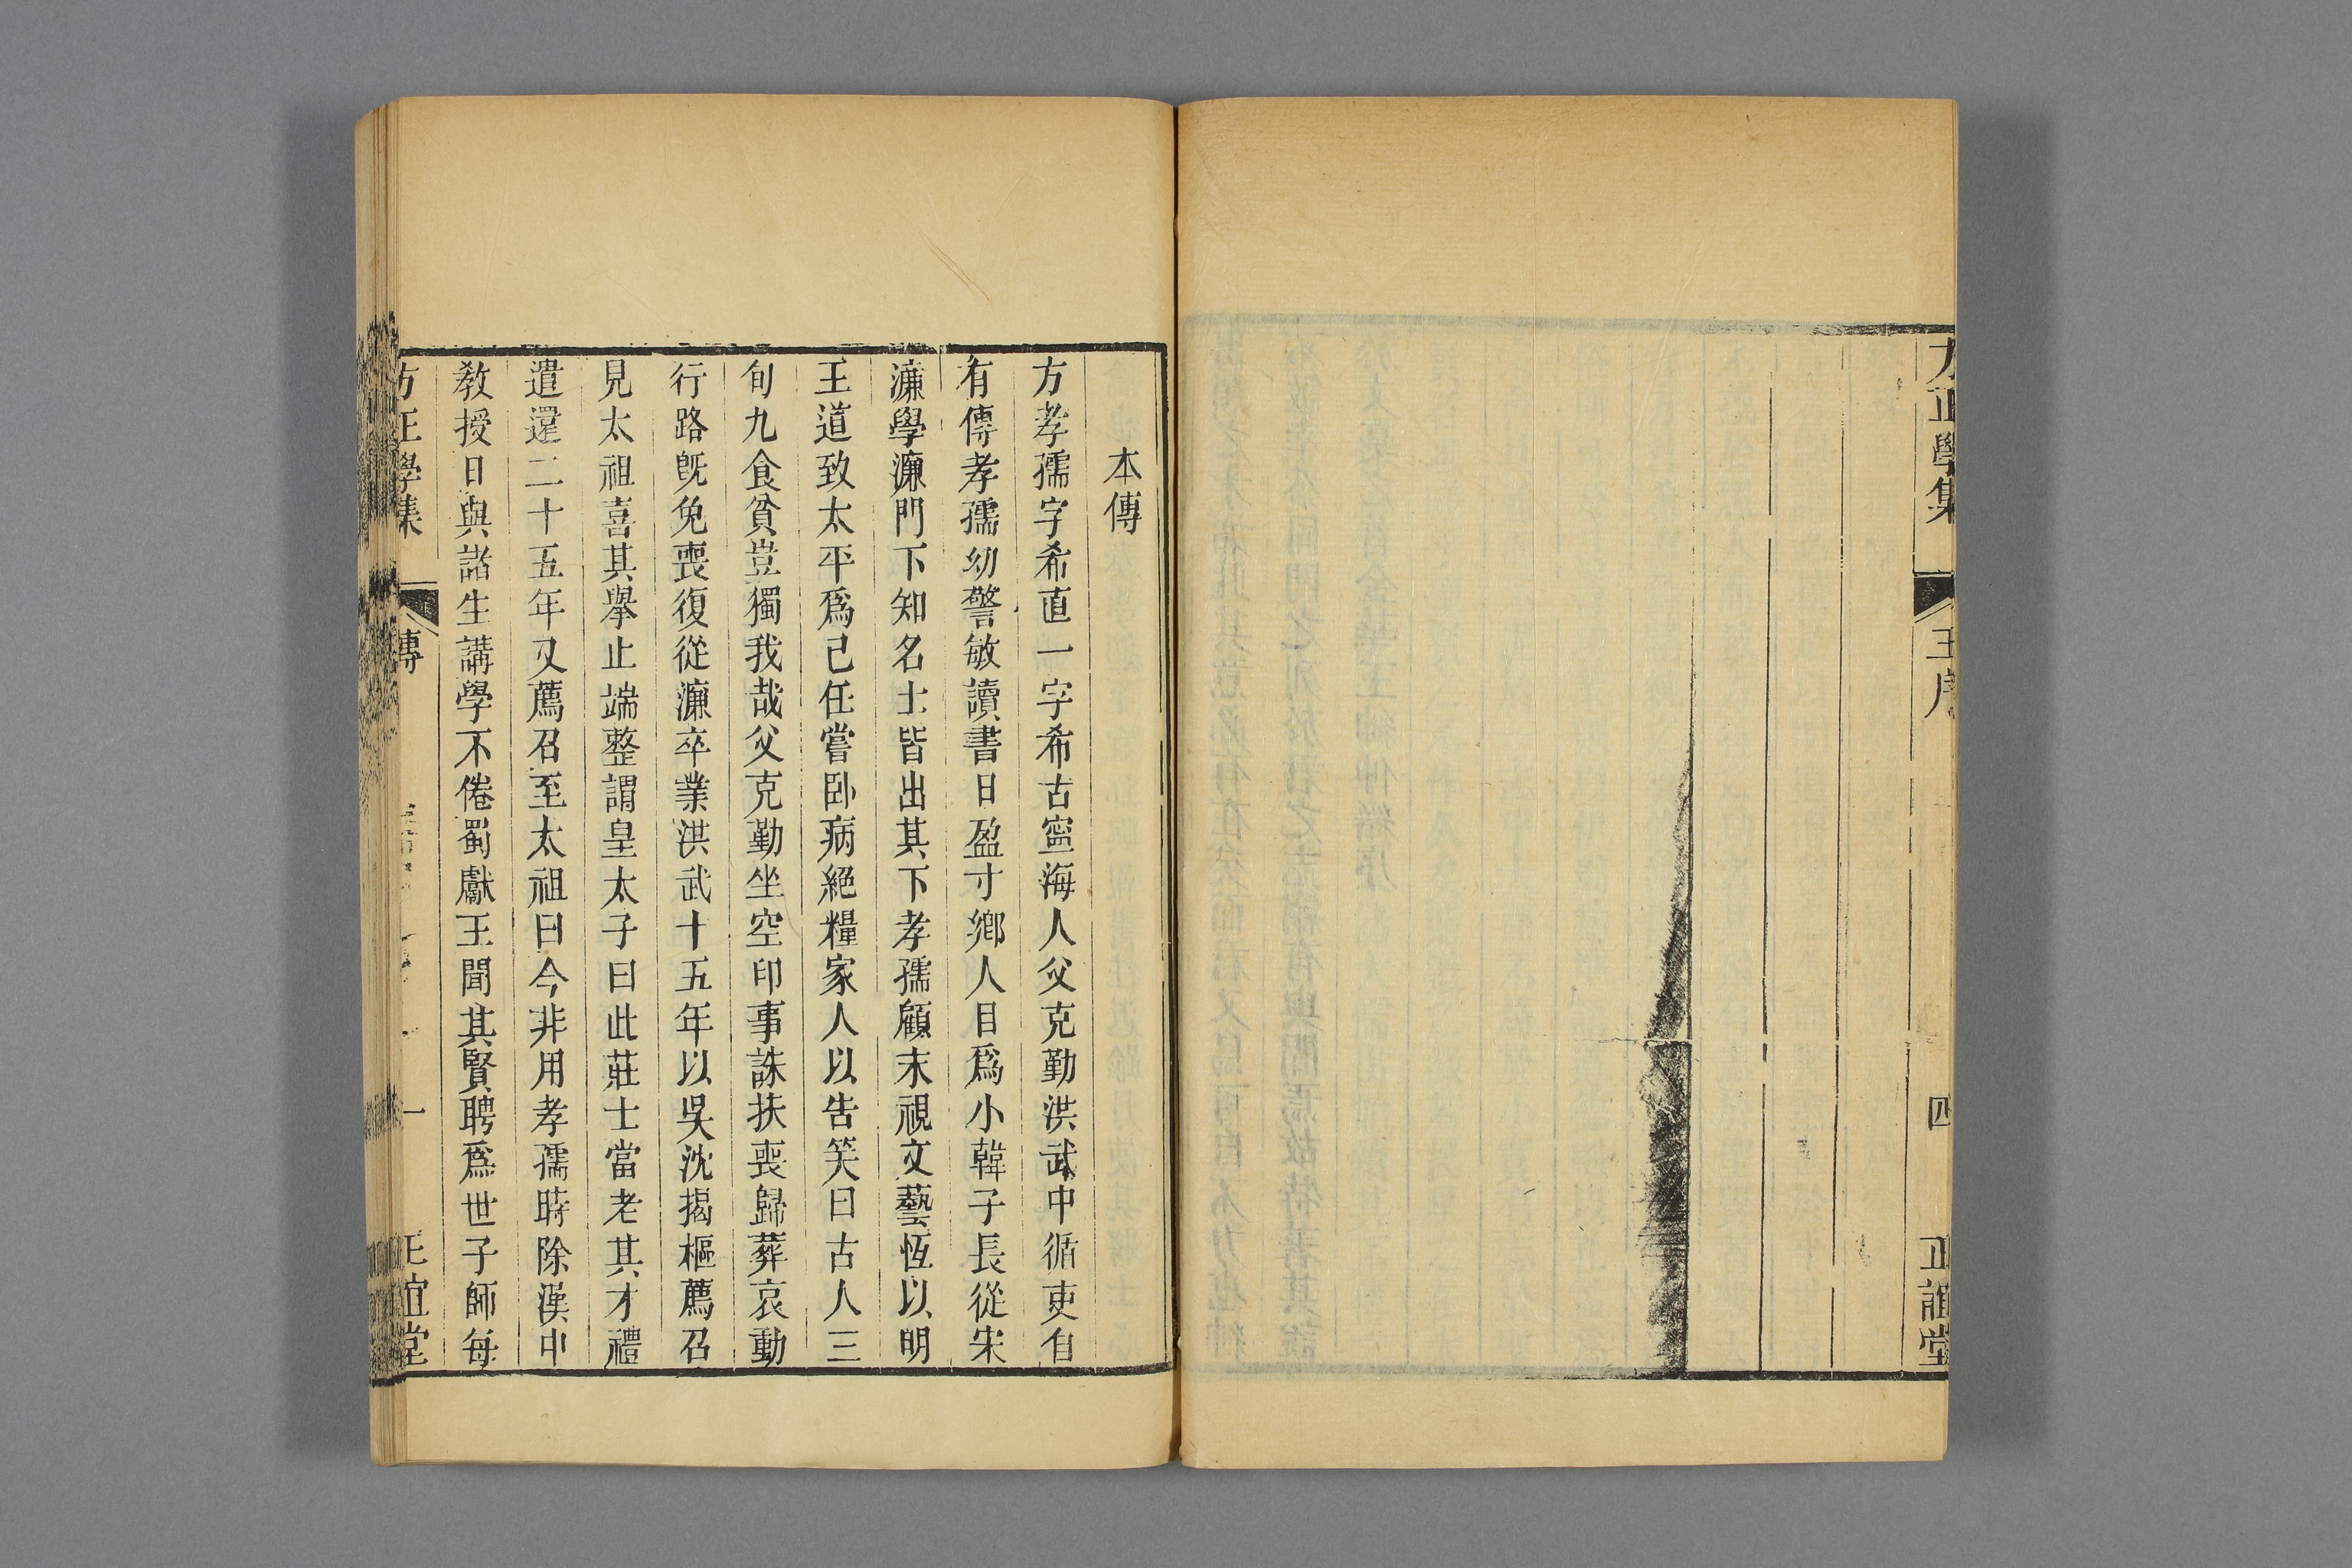 方正學集
王序
四
正誼堂
本傳
方孝孺字希直一字希古寧海人父克勤洪武中循吏自
有傳孝孺幼警敏讀書日盈寸鄉人目爲小韓子長從宋
濂學濂門下知名士皆出其下孝孺顧末視文藝恆以明
王道致太平爲己任嘗臥病絕糧家人以告笑曰古人三
旬九食貧豈獨我哉父克勤坐空印事誅扶喪歸葬哀動
行路旣免喪復從濂卒業洪武十五年以吳沈揭樞薦召
見太祖喜其舉止端整謂皇太子曰此莊士當老其才禮
遣還二十五年又薦召至太祖曰今非用孝孺時除漢中
教授日與諸生講學不倦蜀獻王聞其賢聘爲世子師每
方正學集
傳
一
正誼堂